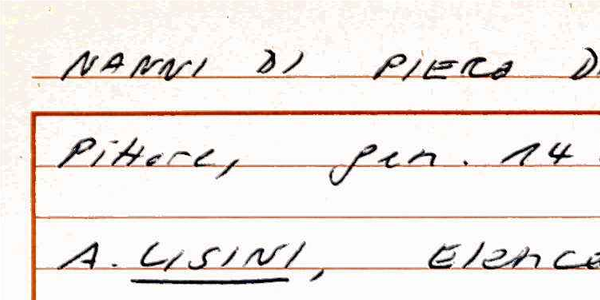 NANNI DI PIERO D
Pittore, gen. 14
A. LISINI, Elenco